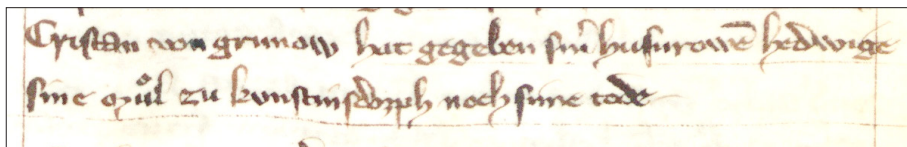 Cristan von grunow hat gegeben sinˀ husurowē hedwige
sine můl zu kunstinsdorph noch sine tode